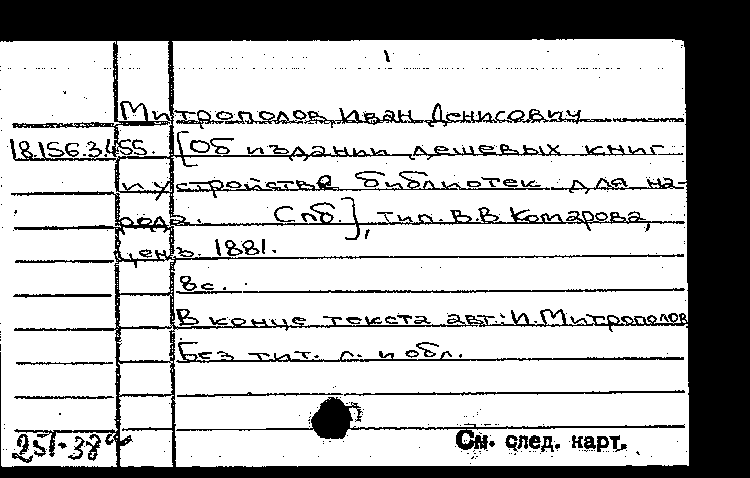 1
Митрополов, Иван Денисович
18.156.3.455. [Об издании дешевых книг
и устройстве библиотек для на-
рода. Спб.], тип. В.В Комарова,
ценз. 1881.
8с.
В конце текста авт.: И. Митрополов
Без тит. л. и обл.
251-38
См. след. карт.